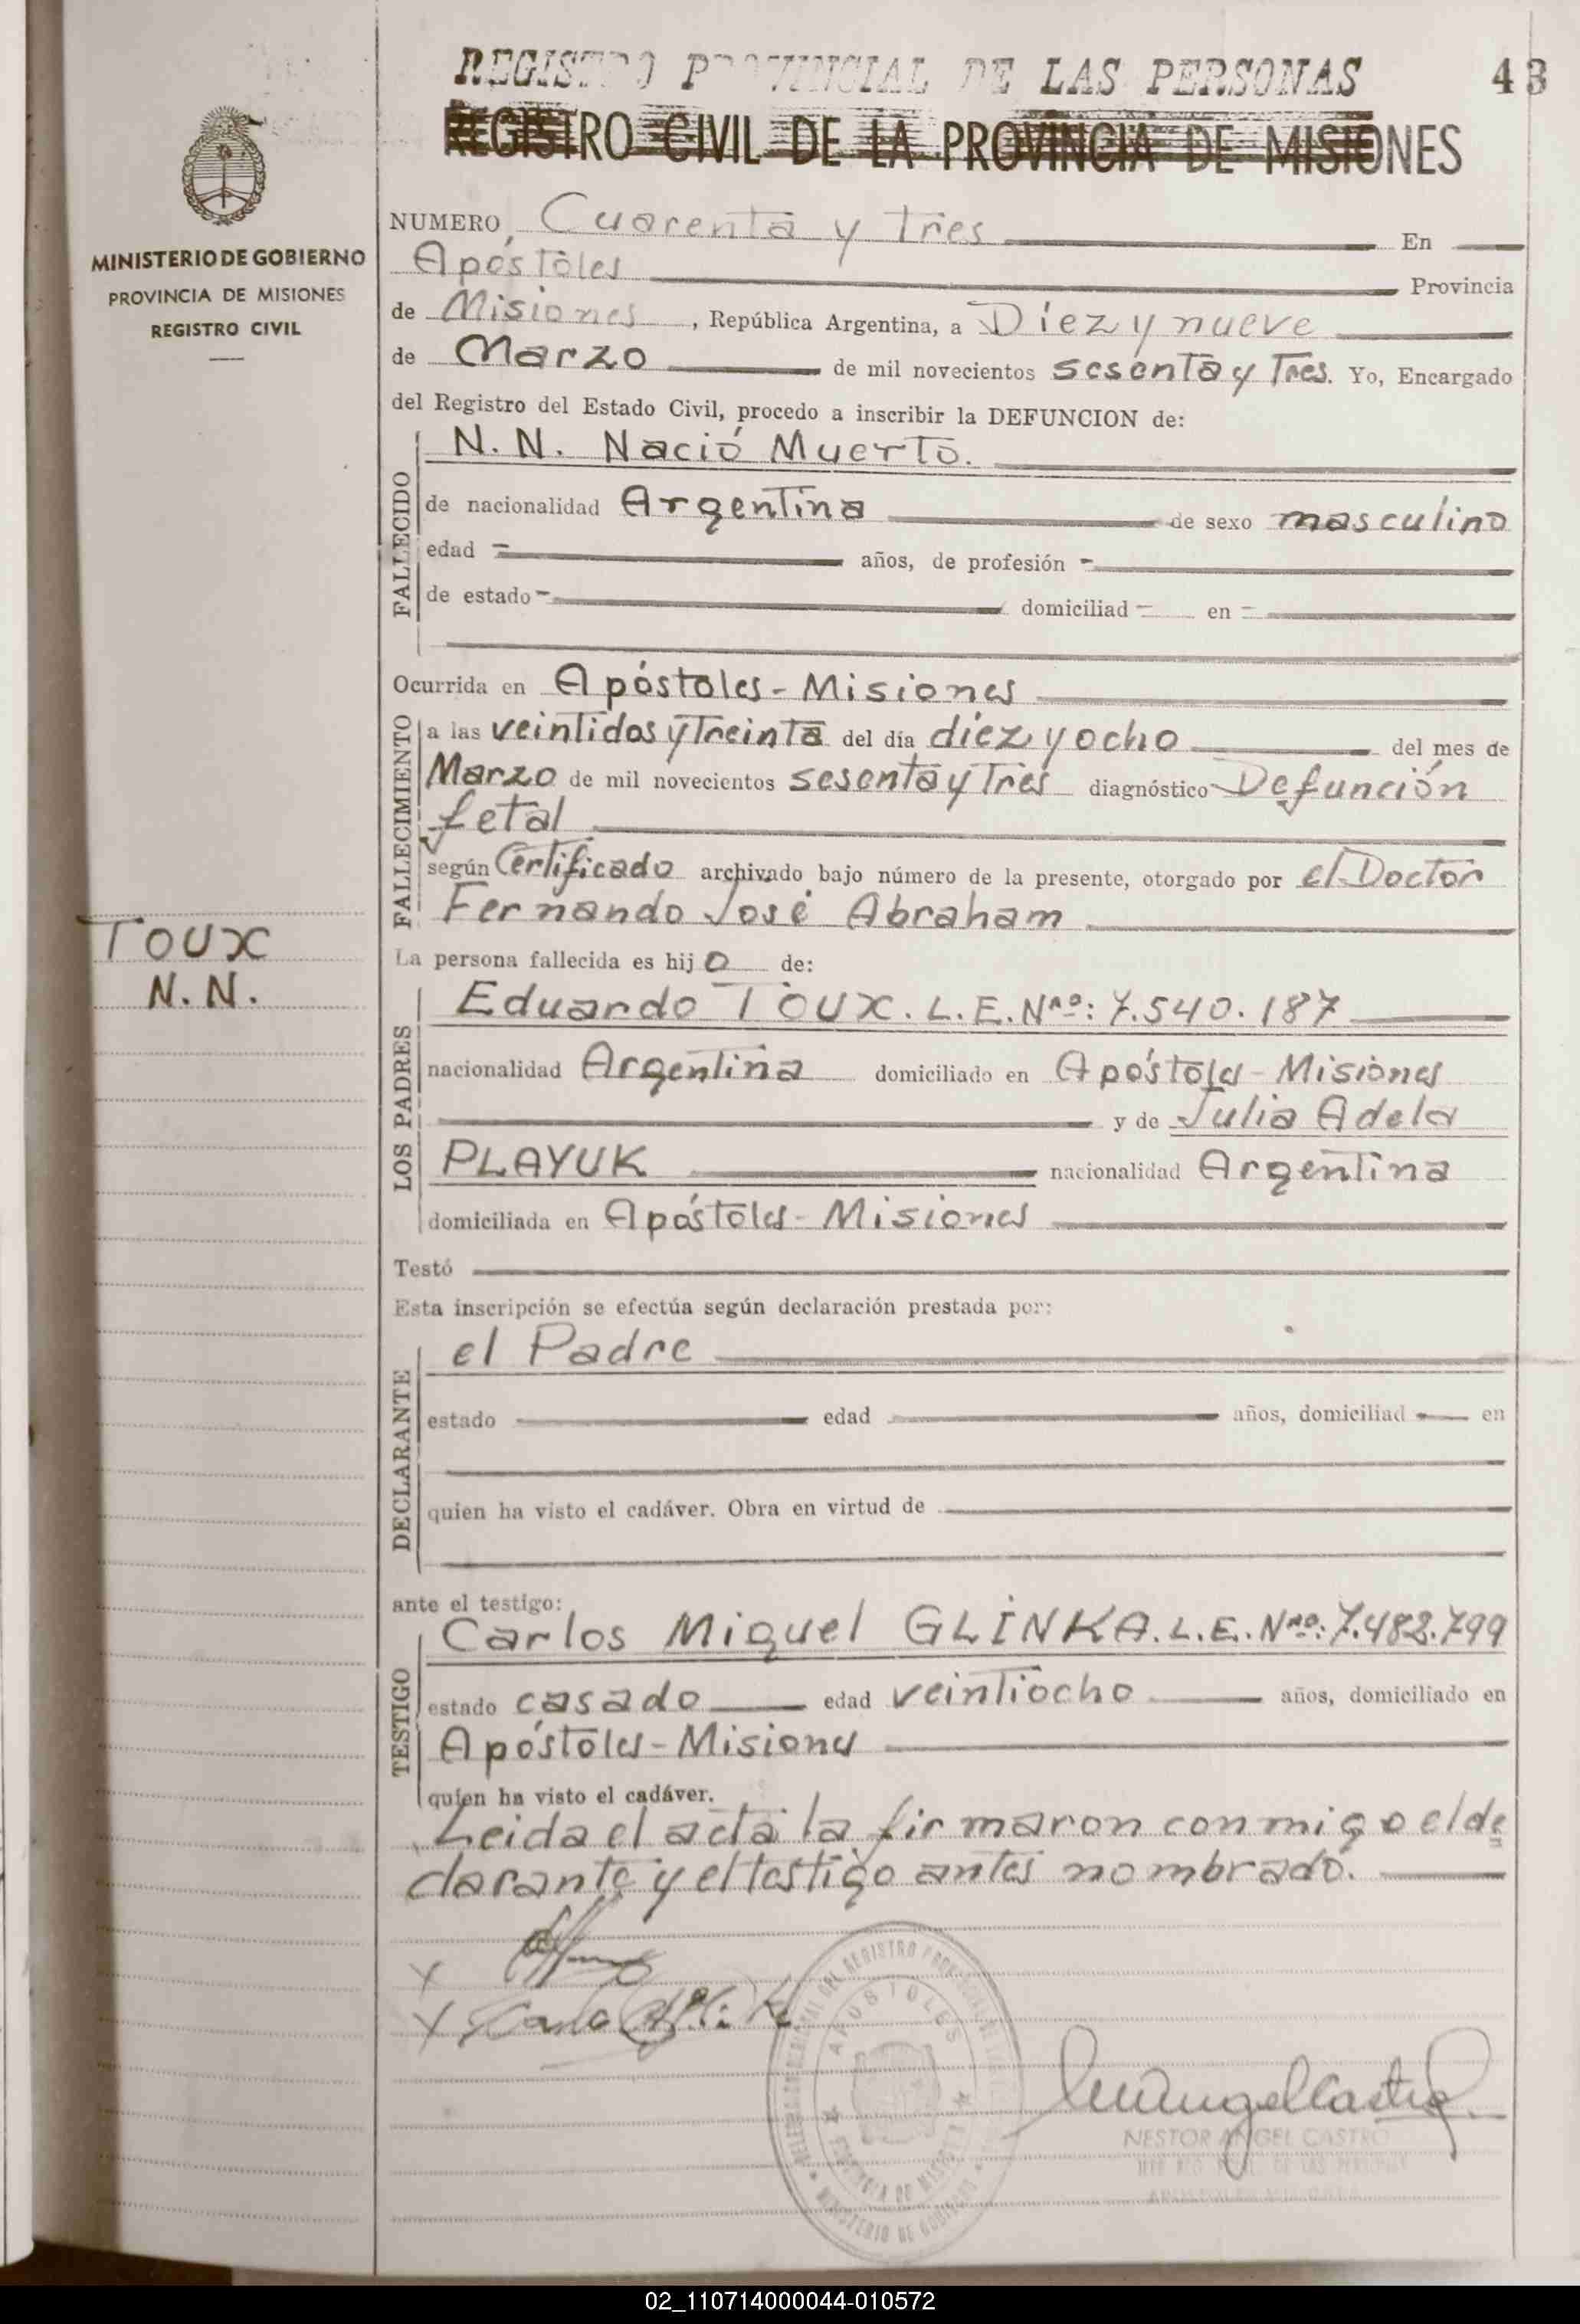 REGISTRO PROVINCIAL DE LAS PERSONAS
43
REGISTRO CIVIL DE LA PROVINCIA DE MISIONES
MINISTERIO DE GOBIERNO
PROVINCIA DE MISIONES
REGISTRO CIVIL
NUMERO Cuarenta y Tres En
Apóstoles Provincia
de Misiones, República Argentina, a Diez y nueve
de Marzo de mil novecientos sesenta y Tres. Yo, Encargado
del Registro del Estado Civil, procedo a inscribir la DEFUNCION de:
FALLECIDO
N. N. Nació Muerto.
de nacionalidad Argentina de sexo masculino
edad - años, de profesión -
de estado - domiciliad - en -
Ocurrida en Apóstoles - Misiones
FALLECIMIENTO
a las veintidos y Treinta del día diez y ocho del mes de
Marzo de mil novecientos sesenta y Tres diagnóstico Defunción
fetal
según Certificado archivado bajo número de la presente, otorgado por el Doctor
Fernando José Abraham
TOUX
N. N.
La persona fallecida es hijo de:
LOS PADRES
Eduardo TOUX. L. E. Nro: 7.540.187
nacionalidad Argentina domiciliado en Apóstoles - Misiones
y de Julia Adela
PLAYUK nacionalidad Argentina
domiciliada en Apóstoles - Misiones
Testó
Esta inscripción se efectúa según declaración prestada por:
DECLARANTE
el Padre
estado edad años, domiciliad en
quien ha visto el cadáver. Obra en virtud de
ante el testigo:
TESTIGO
Carlos Miguel GLINKA. L. E. Nro: 7.482.799
estado casado edad veintiocho años, domiciliado en
Apóstoles - Misiones
quien ha visto el cadáver.
Leida el acta la firmaron conmigo el de
clarante y el testigo antes nombrado.
APOSTOLES
PROVINCIA DE MISIONES
MINISTERIO DE GOBIERNO
NESTOR ANGEL CASTRO
02_110714000044-010572